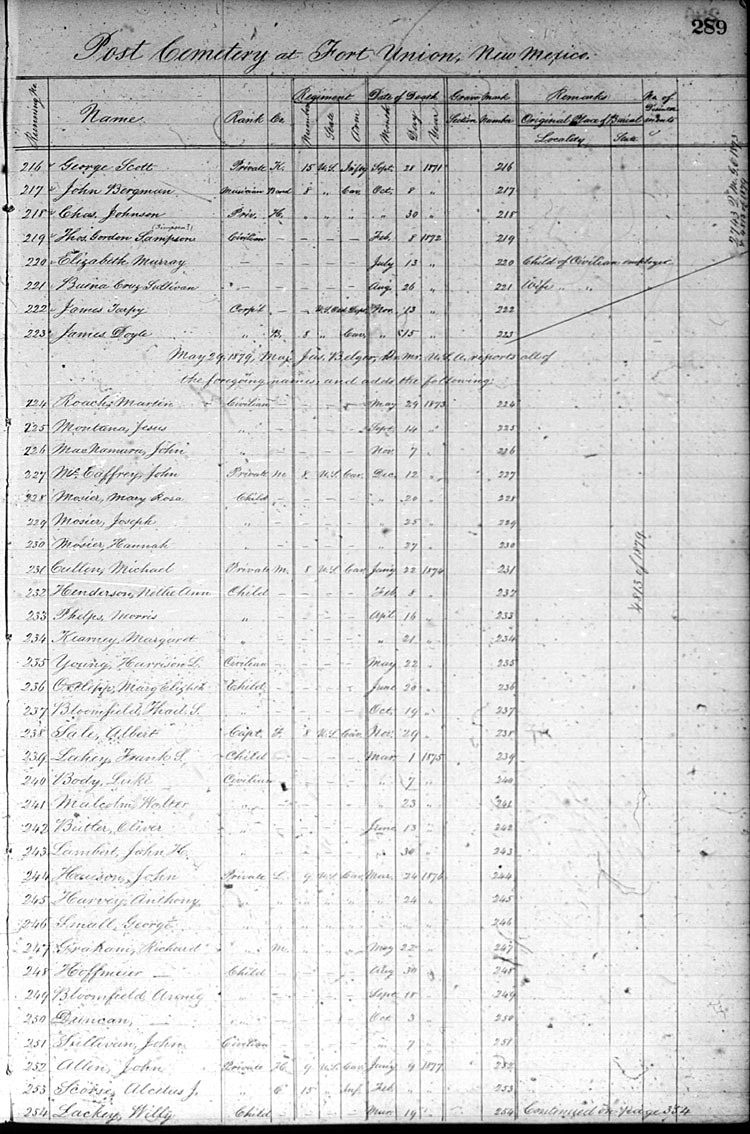 289
Post Cemetery at Fort Union, New Mexico.
Running No. Name Rank Co. Regiment Number State Arm Date of Death Month Day Year Grave Mark Section Number Remarks Original Place of Burial Locality State No. of
216 George Scott Private K. 15 U.S. Inf'y Sept. 28 1871 216
217 John Bergman Musician Band 8 " Cav. Oct. 8 " 217
218 Chas. Johnson Priv. H. " " " " 30 " 218
(Simpson?)
219 Thos. Gordon Sampson Civilian – – – – Feb. 8 1872 219
220 Elizabeth Murray – – – – – July 13 " 220 Child of Civilian employee
221 Buena Cruz Sullivan – – – – Aug. 26 " 221 Wife " "
222 James Tarpy Corp'l – – U.S. Nov. 13 " 222
223 James Doyle " 8 " Cav. " 15 " 223
May 29, 1879, Maj. Jas. Belger, U.S.A. reports all of
the foregoing names, and adds the following:
224 Roach, Martin Civilian – – – – May 29 1873 224
225 Montana, Jesus " – – – – Sept. 14 " 225
226 MacNamara, John " – – – – Nov. 7 " 226
227 McCaffrey, John Private M. 8 U.S. Cav. Dec. 12 " 227
228 Mosier, Mary Rosa Child – – – – " 20 " 228
229 Mosier, Joseph " – – – – " 25 " 229
230 Mosier, Hannah " – – – – " 27 " 230
231 Cullen, Michael Private M. 8 U.S. Cav. Jany 22 1874 231
232 Henderson, Nellie Ann Child – – – – Feb. 8 " 232
233 Phelps, Morris " – – – – Apl. 16 " 233
234 Kearney, Margaret " – – – – " 21 " 234
235 Young, Harrison L. Civilian – – – – May 22 " 235
236 Mary Elizbth Child – – – – June 20 " 236
237 Bloomfield, Thad. S. " – – – – Oct. 19 " 237
238 Albert Capt. 8 U.S. Cav. Nov. 29 " 238
239 Lahey, Frank S. Child – – – – Mar. 1 1875 239
240 Body, Luke Civilian – – – – " 7 " 240
241 Malcolm, Walter " – – – – " 23 " 241
242 Butler, Oliver " – – – – June 13 " 242
243 Lambert, John H. " – – – – " 30 " 243
244 John Private L. 9 U.S. Cav. Mar. 24 1876 244
245 Harvey, Anthony " " " " " " 24 " 245
246 Small, George " " " " " " 246
247 Graham, Richard " M. " " " May 22 " 247
248 Hoffmeier — Child – – – – Aug 30 " 248
249 Bloomfield, " – – – – Sept. 18 " 249
250 Duncan, — " – – – – Oct. 3 " 250
251 Sullivan, John Civilian – – – – " 7 " 251
252 Allen, John Private H. 9 U.S. Cav. Jany 9 1877 252
253 J. " 15 " Inf. Feb. " 253
254 Lackey, Willy Child – – – – Mar. 19 " 254 Continued on page 354
4813 of 1879